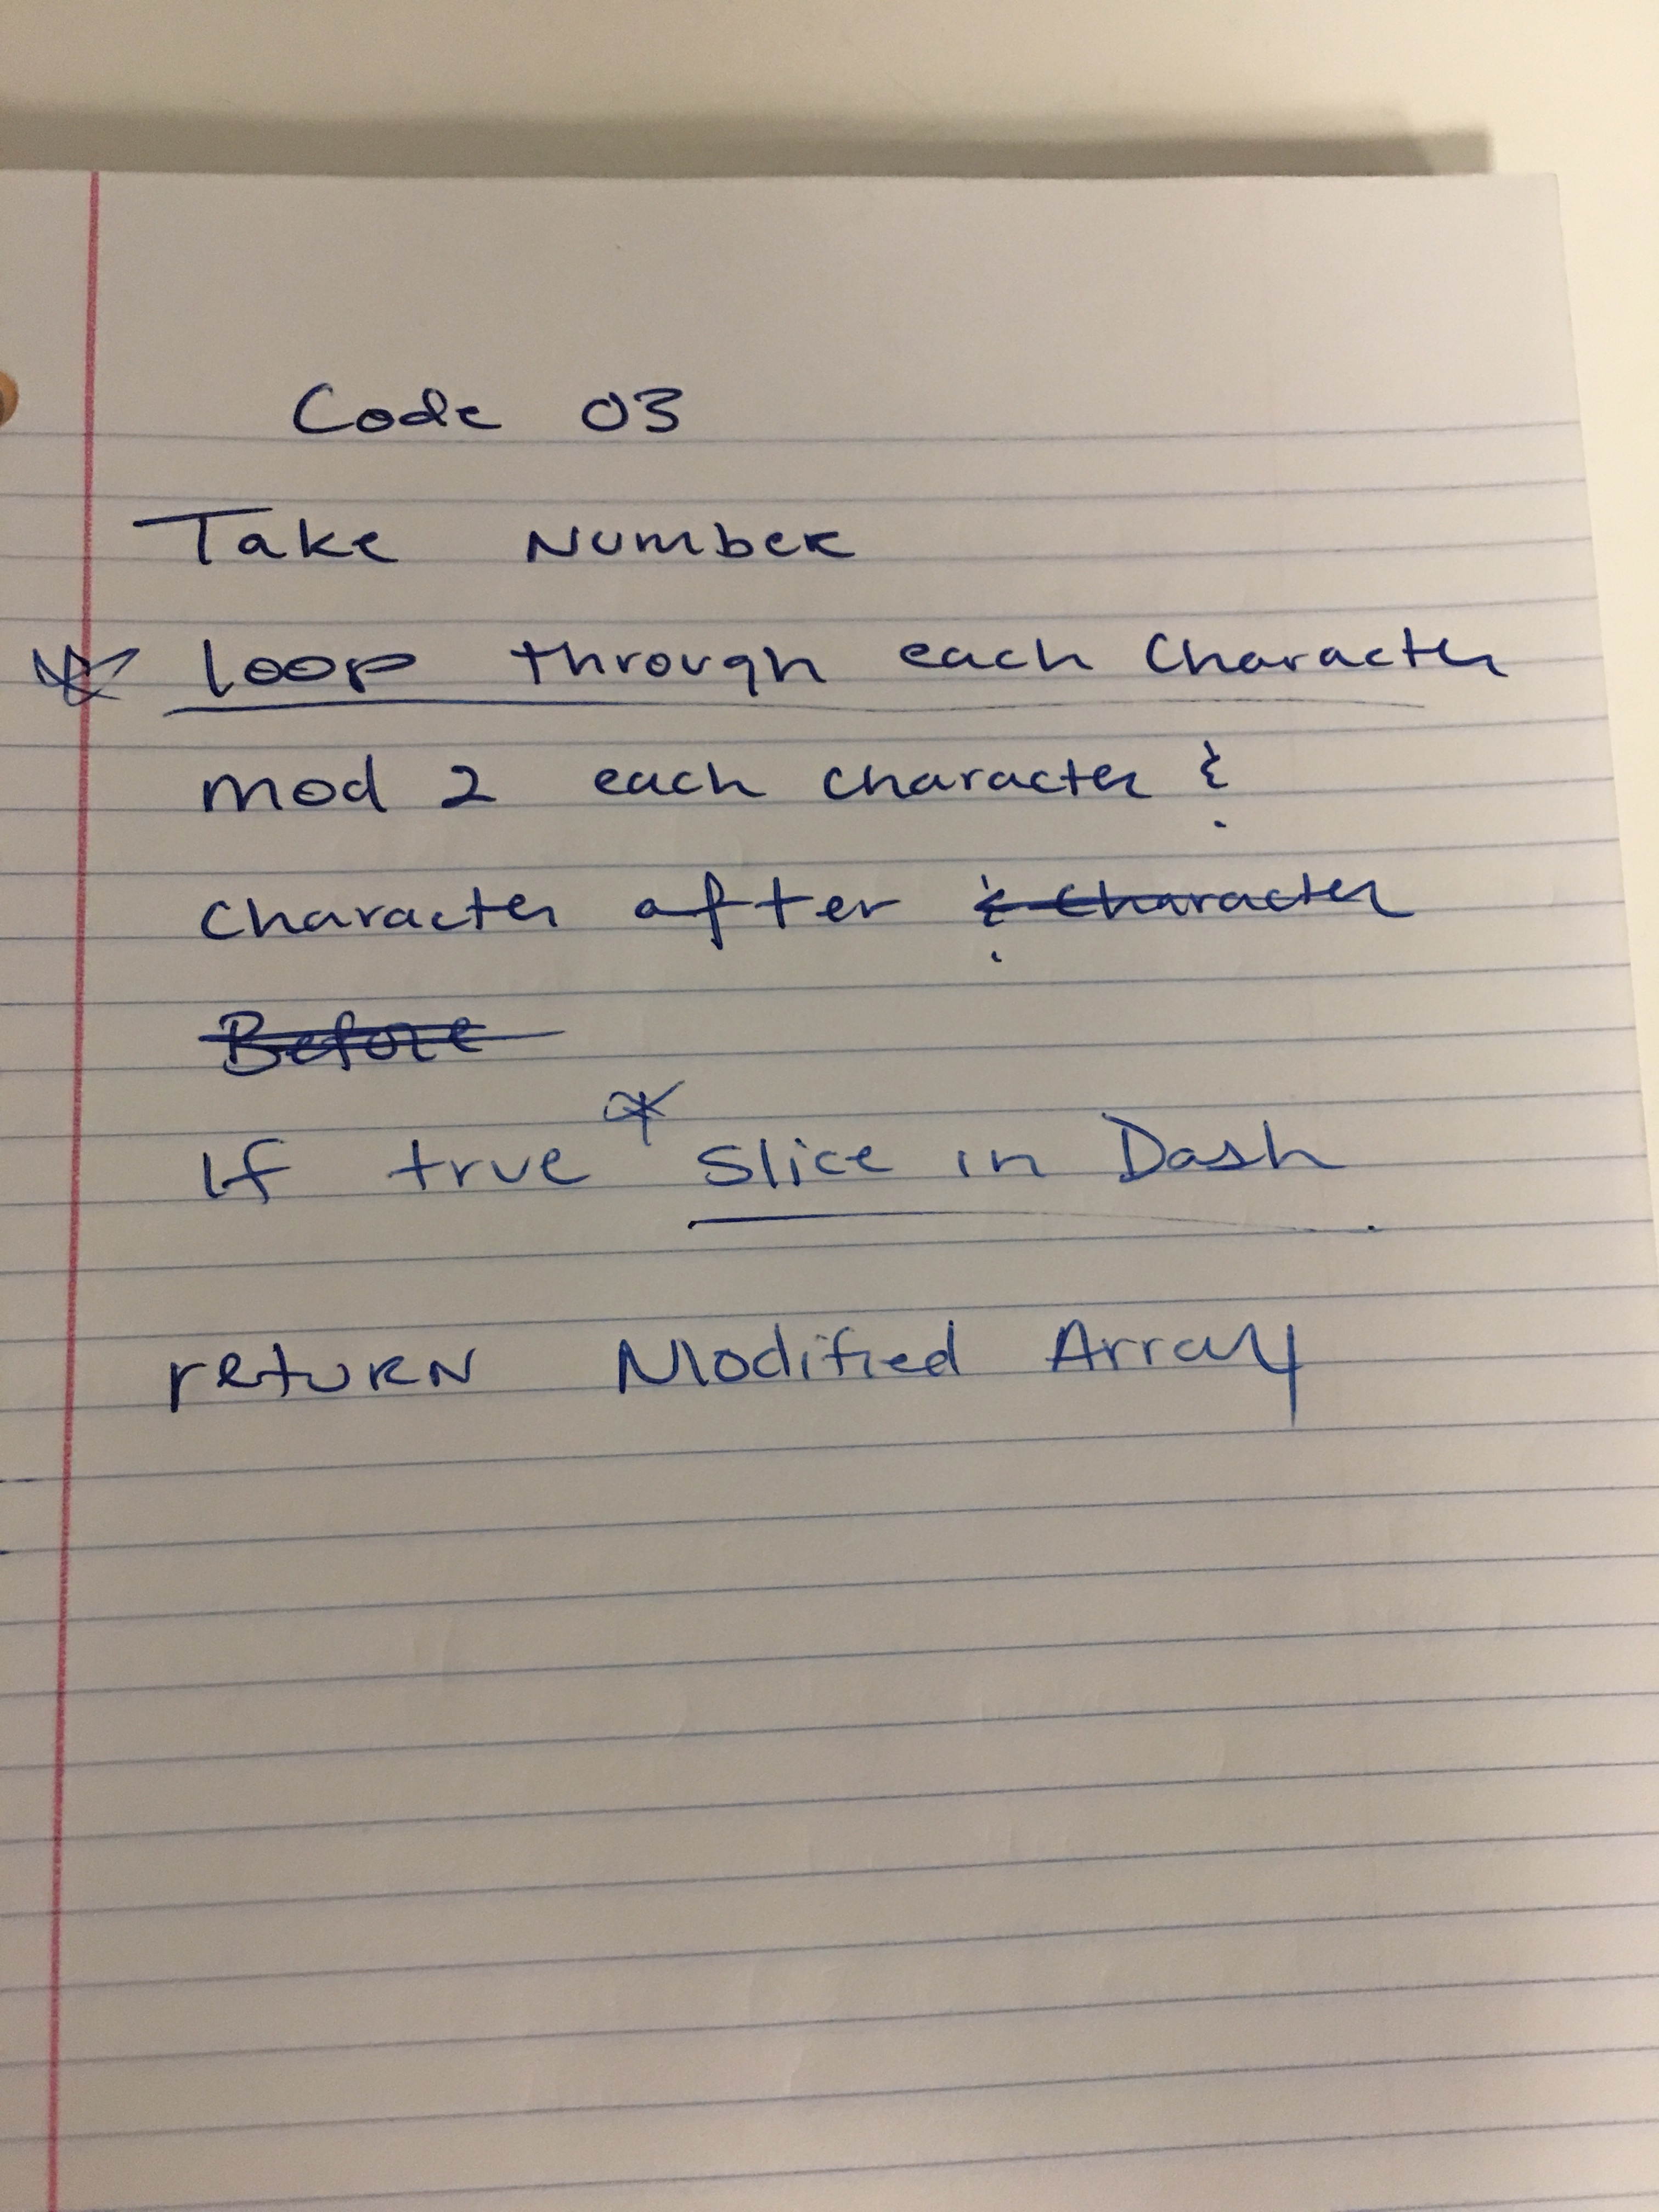 Code 03
Take Number
loop through each Character
mod 2 each character &
Character after & Character
Before
If true * Slice in Dash
return Modified Array